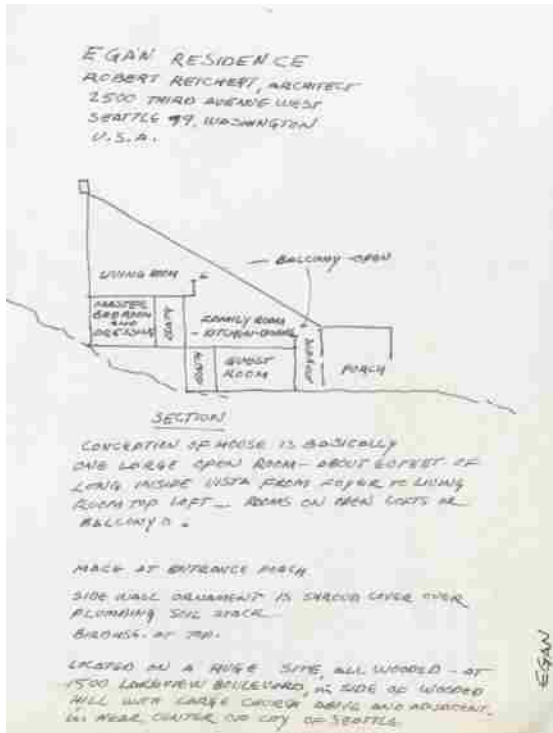 EGAN RESIDENCE
ROBERT REICHERT, ARCHITECT
2500 THIRD AVENUE WEST
SEATTLE 99, WASHINGTON
U.S.A.
LIVING ROOM
BALCONY-OPEN
MASTER BEDROOM AND DRESSING
BATH
FAMILY ROOM
- KITCHEN-DINING
BATH
GUEST ROOM
FOYER
PORCH
SECTION
CONCEPTION OF HOUSE IS BASICALLY
ONE LARGE OPEN ROOM - ABOUT 60 FEET OF
LONG INSIDE VISTA FROM FOYER TO LIVING
ROOM TOP LEFT - ROOMS ON OPEN LOFTS OR
BALCONYS.
MASK AT ENTRANCE PORCH
SIDE WALL ORNAMENT IS SHROUD COVER OVER
PLUMBING SOIL STACK
AT TOP.
LOCATED ON A HUGE SITE, ALL WOODED - AT
1500 LAKEVIEW BOULEVARD, SIDE OF WOODED
HILL WITH LARGE CHURCH ABOVE AND ADJACENT,
NEAR CENTER OF CITY OF SEATTLE
EGAN